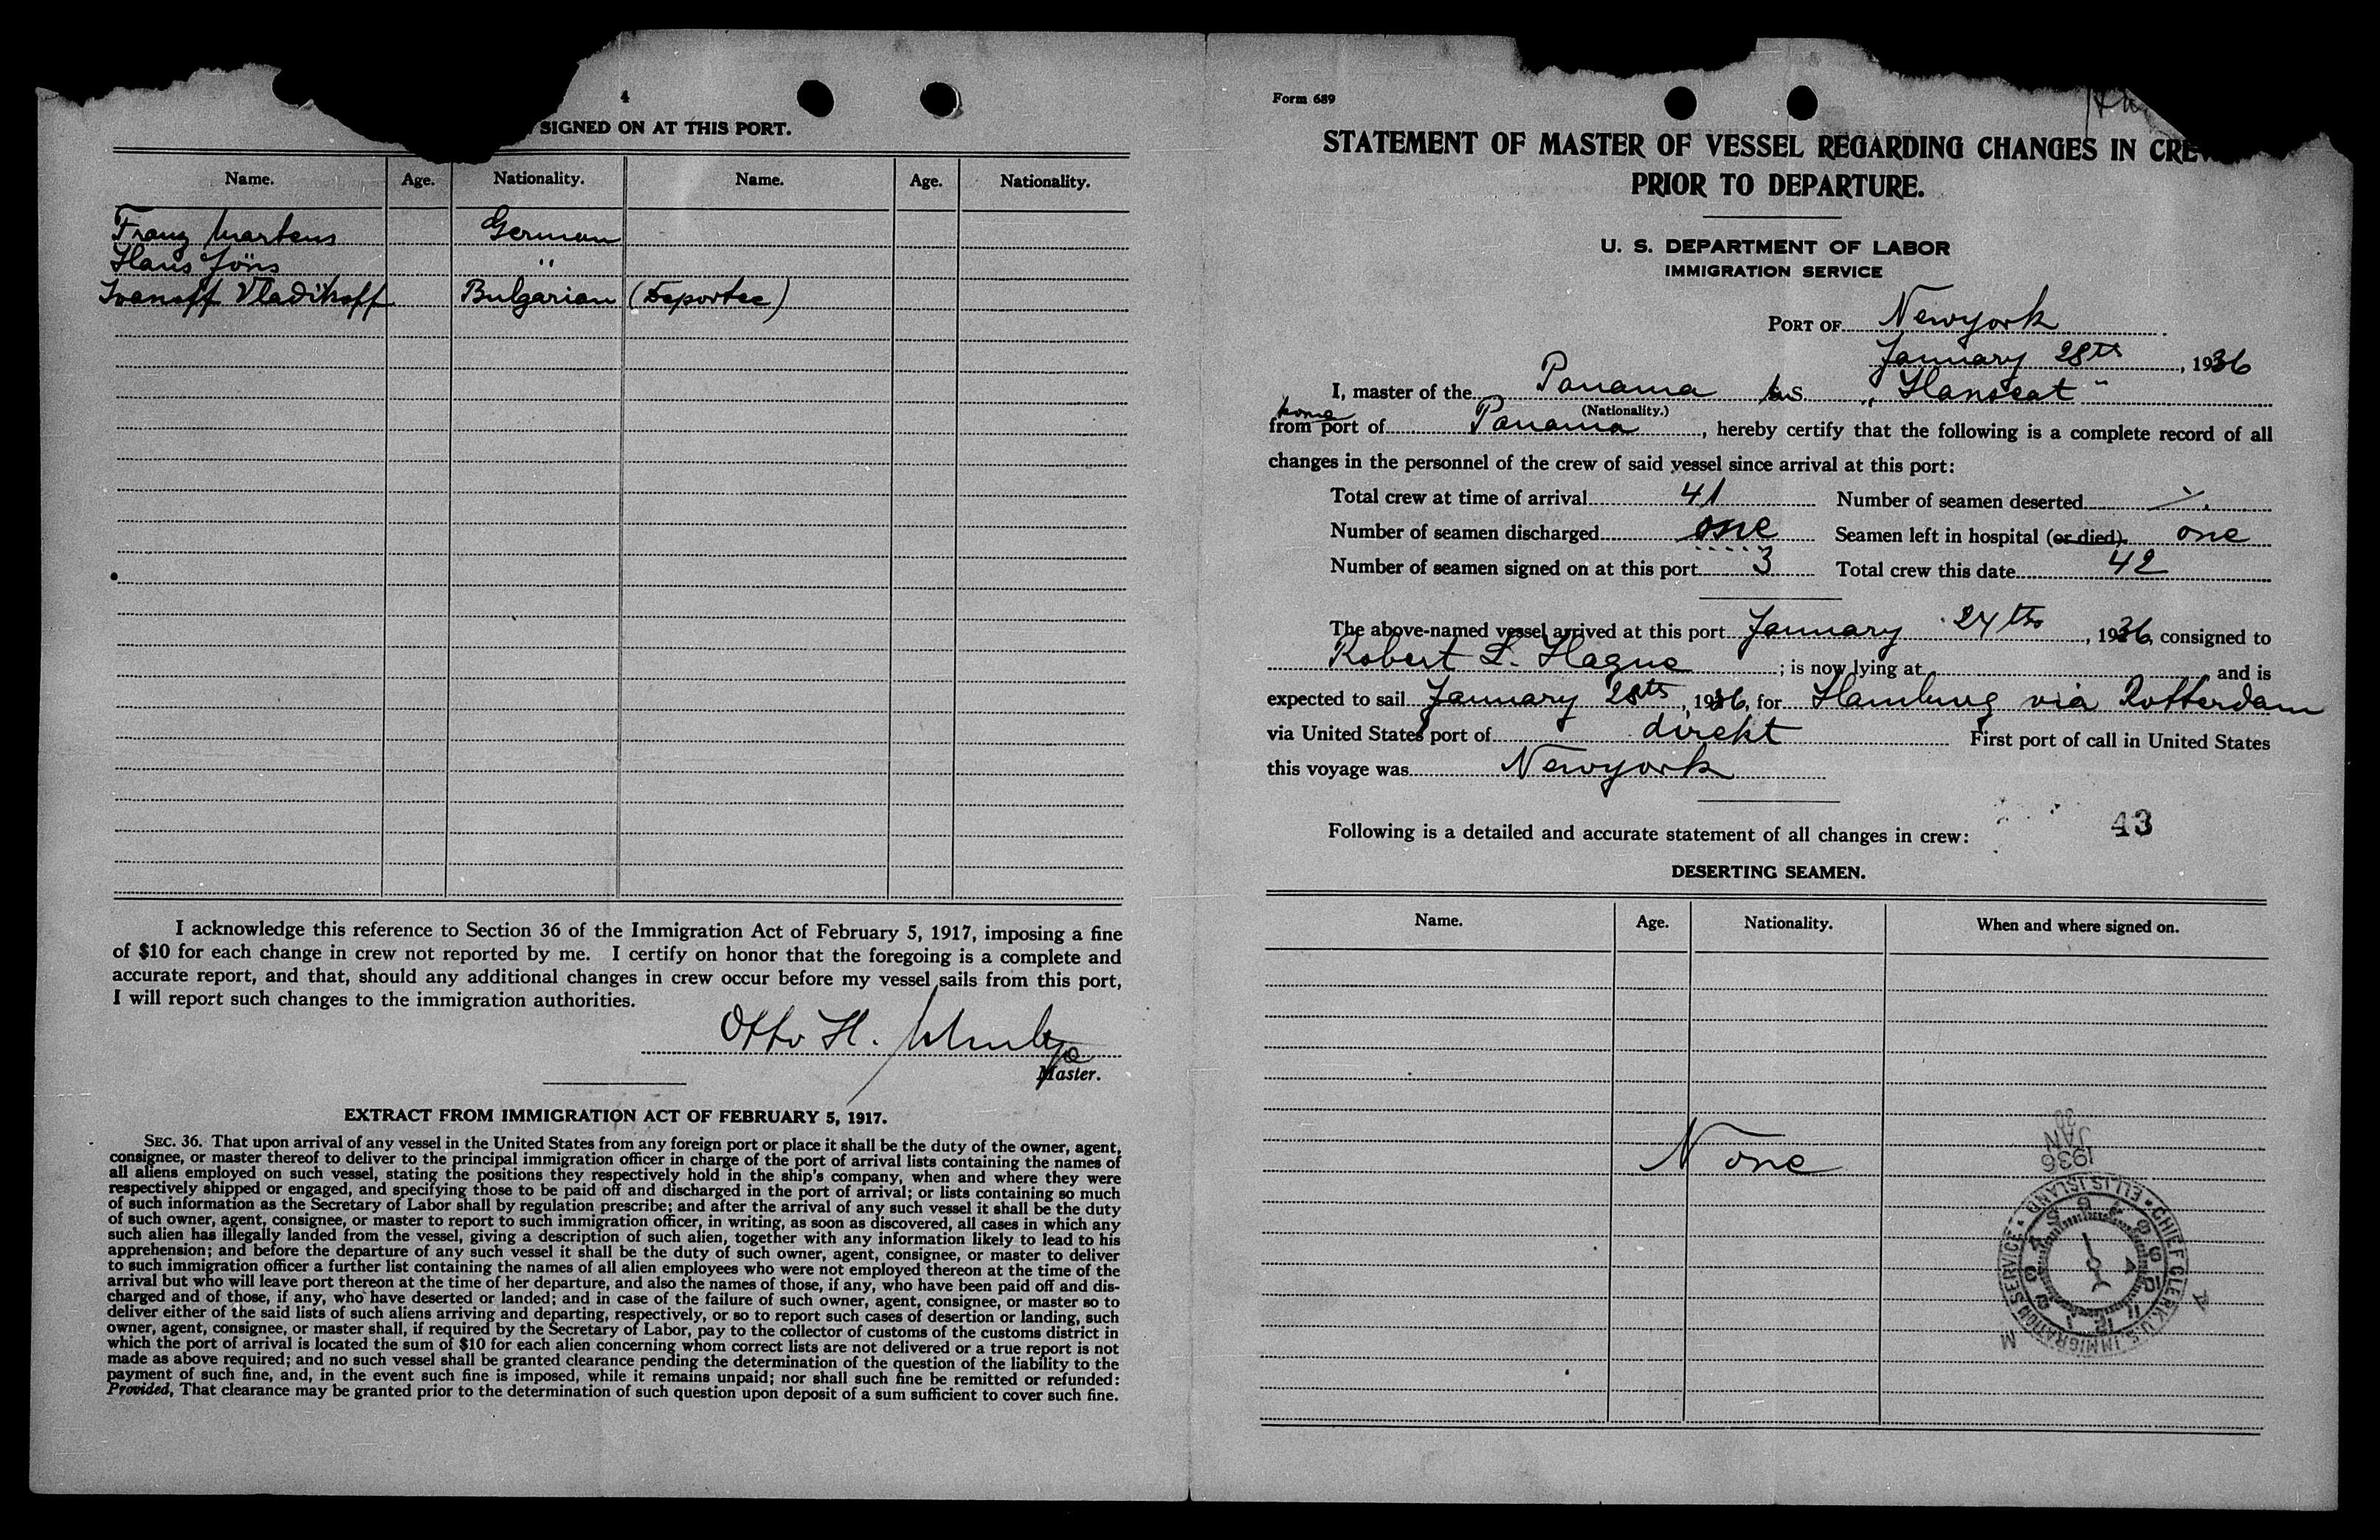 4
SIGNED ON AT THIS PORT.
Name. Age. Nationality. Name. Age. Nationality.
Franz Martens German
Hans Jöns "
Ivanoff Vladikoff Bulgarian (Deportee)
I acknowledge this reference to Section 36 of the Immigration Act of February 5, 1917, imposing a fine
of $10 for each change in crew not reported by me. I certify on honor that the foregoing is a complete and
accurate report, and that, should any additional changes in crew occur before my vessel sails from this port,
I will report such changes to the immigration authorities.
Otto H.
Master.
EXTRACT FROM IMMIGRATION ACT OF FEBRUARY 5, 1917.
SEC. 36. That upon arrival of any vessel in the United States from any foreign port or place it shall be the duty of the owner, agent,
consignee, or master thereof to deliver to the principal immigration officer in charge of the port of arrival lists containing the names of
all aliens employed on such vessel, stating the positions they respectively hold in the ship's company, when and where they were
respectively shipped or engaged, and specifying those to be paid off and discharged in the port of arrival; or lists containing so much
of such information as the Secretary of Labor shall by regulation prescribe; and after the arrival of any such vessel it shall be the duty
of such owner, agent, consignee, or master to report to such immigration officer, in writing, as soon as discovered, all cases in which any
such alien has illegally landed from the vessel, giving a description of such alien, together with any information likely to lead to his
apprehension; and before the departure of any such vessel it shall be the duty of such owner, agent, consignee, or master to deliver
to such immigration officer a further list containing the names of all alien employees who were not employed thereon at the time of the
arrival but who will leave port thereon at the time of her departure, and also the names of those, if any, who have been paid off and dis-
charged and of those, if any, who have deserted or landed; and in case of the failure of such owner, agent, consignee, or master so to
deliver either of the said lists of such aliens arriving and departing, respectively, or so to report such cases of desertion or landing, such
owner, agent, consignee, or master shall, if required by the Secretary of Labor, pay to the collector of customs of the customs district in
which the port of arrival is located the sum of $10 for each alien concerning whom correct lists are not delivered or a true report is not
made as above required; and no such vessel shall be granted clearance pending the determination of the question of the liability to the
payment of such fine, and, in the event such fine is imposed, while it remains unpaid; nor shall such fine be remitted or refunded:
Provided, That clearance may be granted prior to the determination of such question upon deposit of a sum sufficient to cover such fine.
Form 689
STATEMENT OF MASTER OF VESSEL REGARDING CHANGES IN CREW
PRIOR TO DEPARTURE.
U. S. DEPARTMENT OF LABOR
IMMIGRATION SERVICE
PORT OF Newyork
January 28th, 1936
I, master of the Panama S "Hanseat"
(Nationality.)
home
from port of Panama, hereby certify that the following is a complete record of all
changes in the personnel of the crew of said vessel since arrival at this port:
Total crew at time of arrival 41 Number of seamen deserted ·/.
Number of seamen discharged one Seamen left in hospital (or died). one
Number of seamen signed on at this port 3 Total crew this date 42
The above-named vessel arrived at this port January 24th, 1936, consigned to
Robert L. Hague; is now lying at and is
expected to sail January 28th, 1936, for Hamburg via Rotterdam
via United States port of direkt First port of call in United States
this voyage was Newyork
43
Following is a detailed and accurate statement of all changes in crew:
DESERTING SEAMEN.
Name. Age. Nationality. When and where signed on.
None
28
JAN
1936
CHIEF CLERK U.S. IMMIGRATION SERVICE • ELLIS ISLAND •
1 2 3 4 5 6 7 8 9 10 11 12
A M